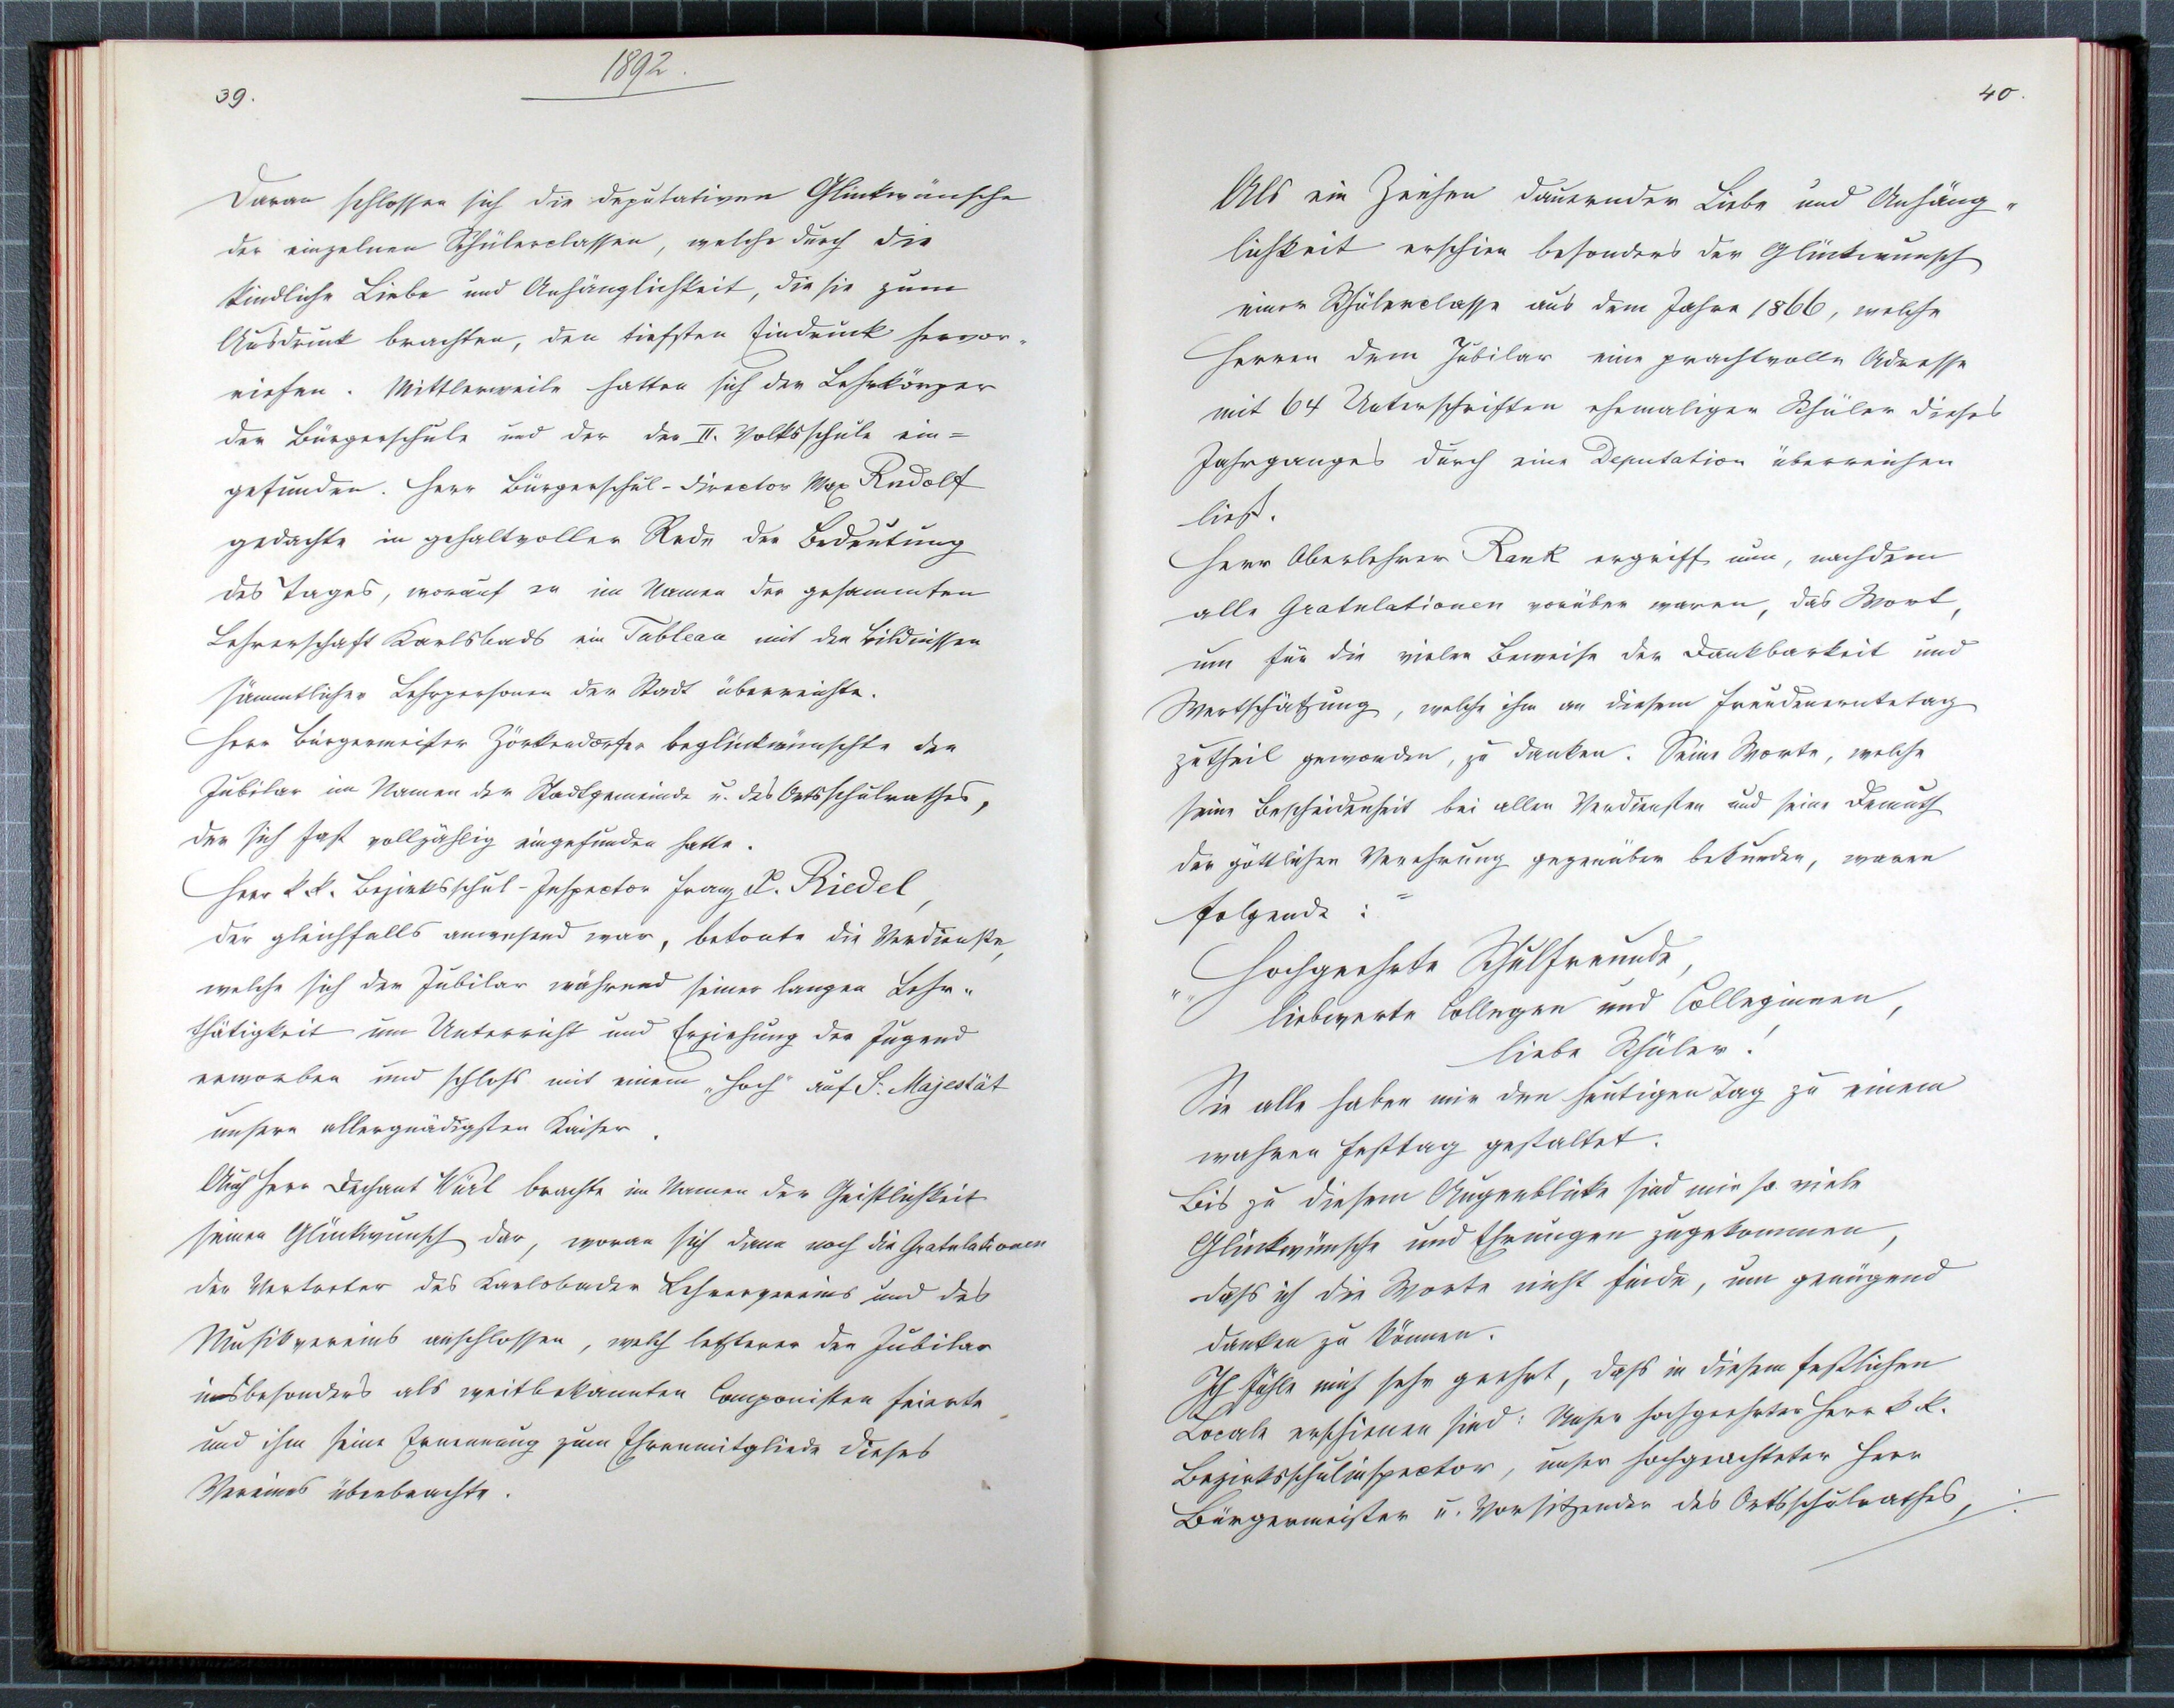 1892.
39.
Daran schlossen sich die deputativen Glückwünsche
der einzelnen Schülerclassen, welche durch die
kindliche Liebe und Anhänglichkeit, die sie zum
Ausdruck brachten, den tiefsten Eindruck hervor-
riefen. Mittlerweile hatten sich der Lehrkörper
der Bürgerschule und der der II. Volksschule ein=
gefunden. Herr Bürgerschul-Director Max Rudolf
gedachte in gehaltvoller Rede der Bedeutung
des Tages, worauf er im Namen der gesammten
Lehrerschaft Karlsbads ein Tableau mit den Bildnissen
sämmtlicher Lehrpersonen der Stadt überreichte.
Herr Bürgermeister Zörkendörfer beglückwünschte den
Jubilar im Namen der Stadtgemeinde u. des Ortsschulrathes,
der sich fast vollzählig eingefunden hatte.
Herr k. k. Bezirksschul-Inspector Franz P. Riedel,
der gleichfalls anwesend war, betonte die Verdienste,
welche sich der Jubilar während seiner langen Lehr-
thätigkeit um Unterricht und Erziehung der Jugend
erworben und schloss mit einem „Hoch" auf S. Majestät
unsern allergnädigsten Kaiser.
Auch Herr Dechant brachte im Namen der Geistlichkeit
seinen Glückwunsch dar, woran sich dann noch die Gratulationen
der Vertreter des Karlsbader Lehrervereins und des
Musikvereins anschlossen, welch letzterer den Jubilar
insbesonders als weitbekannten Componisten feierte
und ihm seine Ernennung zum Ehrenmitgliede dieses
Vereines überbrachte.
40.
Als ein Zeichen dauernder Liebe und Anhäng-
lichkeit erschien besonders der Glückwunsch
einer Schülerclasse aus dem Jahre 1866, welche
Herren dem Jubilar eine prachtvolle Adresse
mit 64 Unterschriften ehemaliger Schüler dieses
Jahrganges durch eine Deputation überreichen
ließ.
Herr Oberlehrer Rank ergriff nun, nachdem
alle Gratulationen vorüber waren, das Wort,
um für die vielen Beweise der Dankbarkeit und
Wertschätzung, welche ihm an diesem Freudenerntetag
zutheil geworden, zu danken. Seine Worte, welche
seine Bescheidenheit bei allen Verdiensten und seine Demuth
der göttlichen Verehrung gegenüber bekunden, waren
folgende:
„Hochgeehrte Schulfreunde,
liebwerte Collegen und Colleginnen,
liebe Schüler!
Sie alle haben mir den heutigen Tag zu einem
wahren Festtag gestaltet.
Bis zu diesem Augenblicke sind mir so viele
Glückwünsche und Ehrungen zugekommen,
dass ich die Worte nicht finde, um genügend
danken zu können.
Ich fühle mich sehr geehrt, dass in diesem festlichen
Locale erschienen sind: Unser hochgeehrter Herr k. k.
Bezirksschulinspector, unser hochgeachteter Herr
Bürgermeister u. Vorsitzender des Ortsschulrathes, ./.